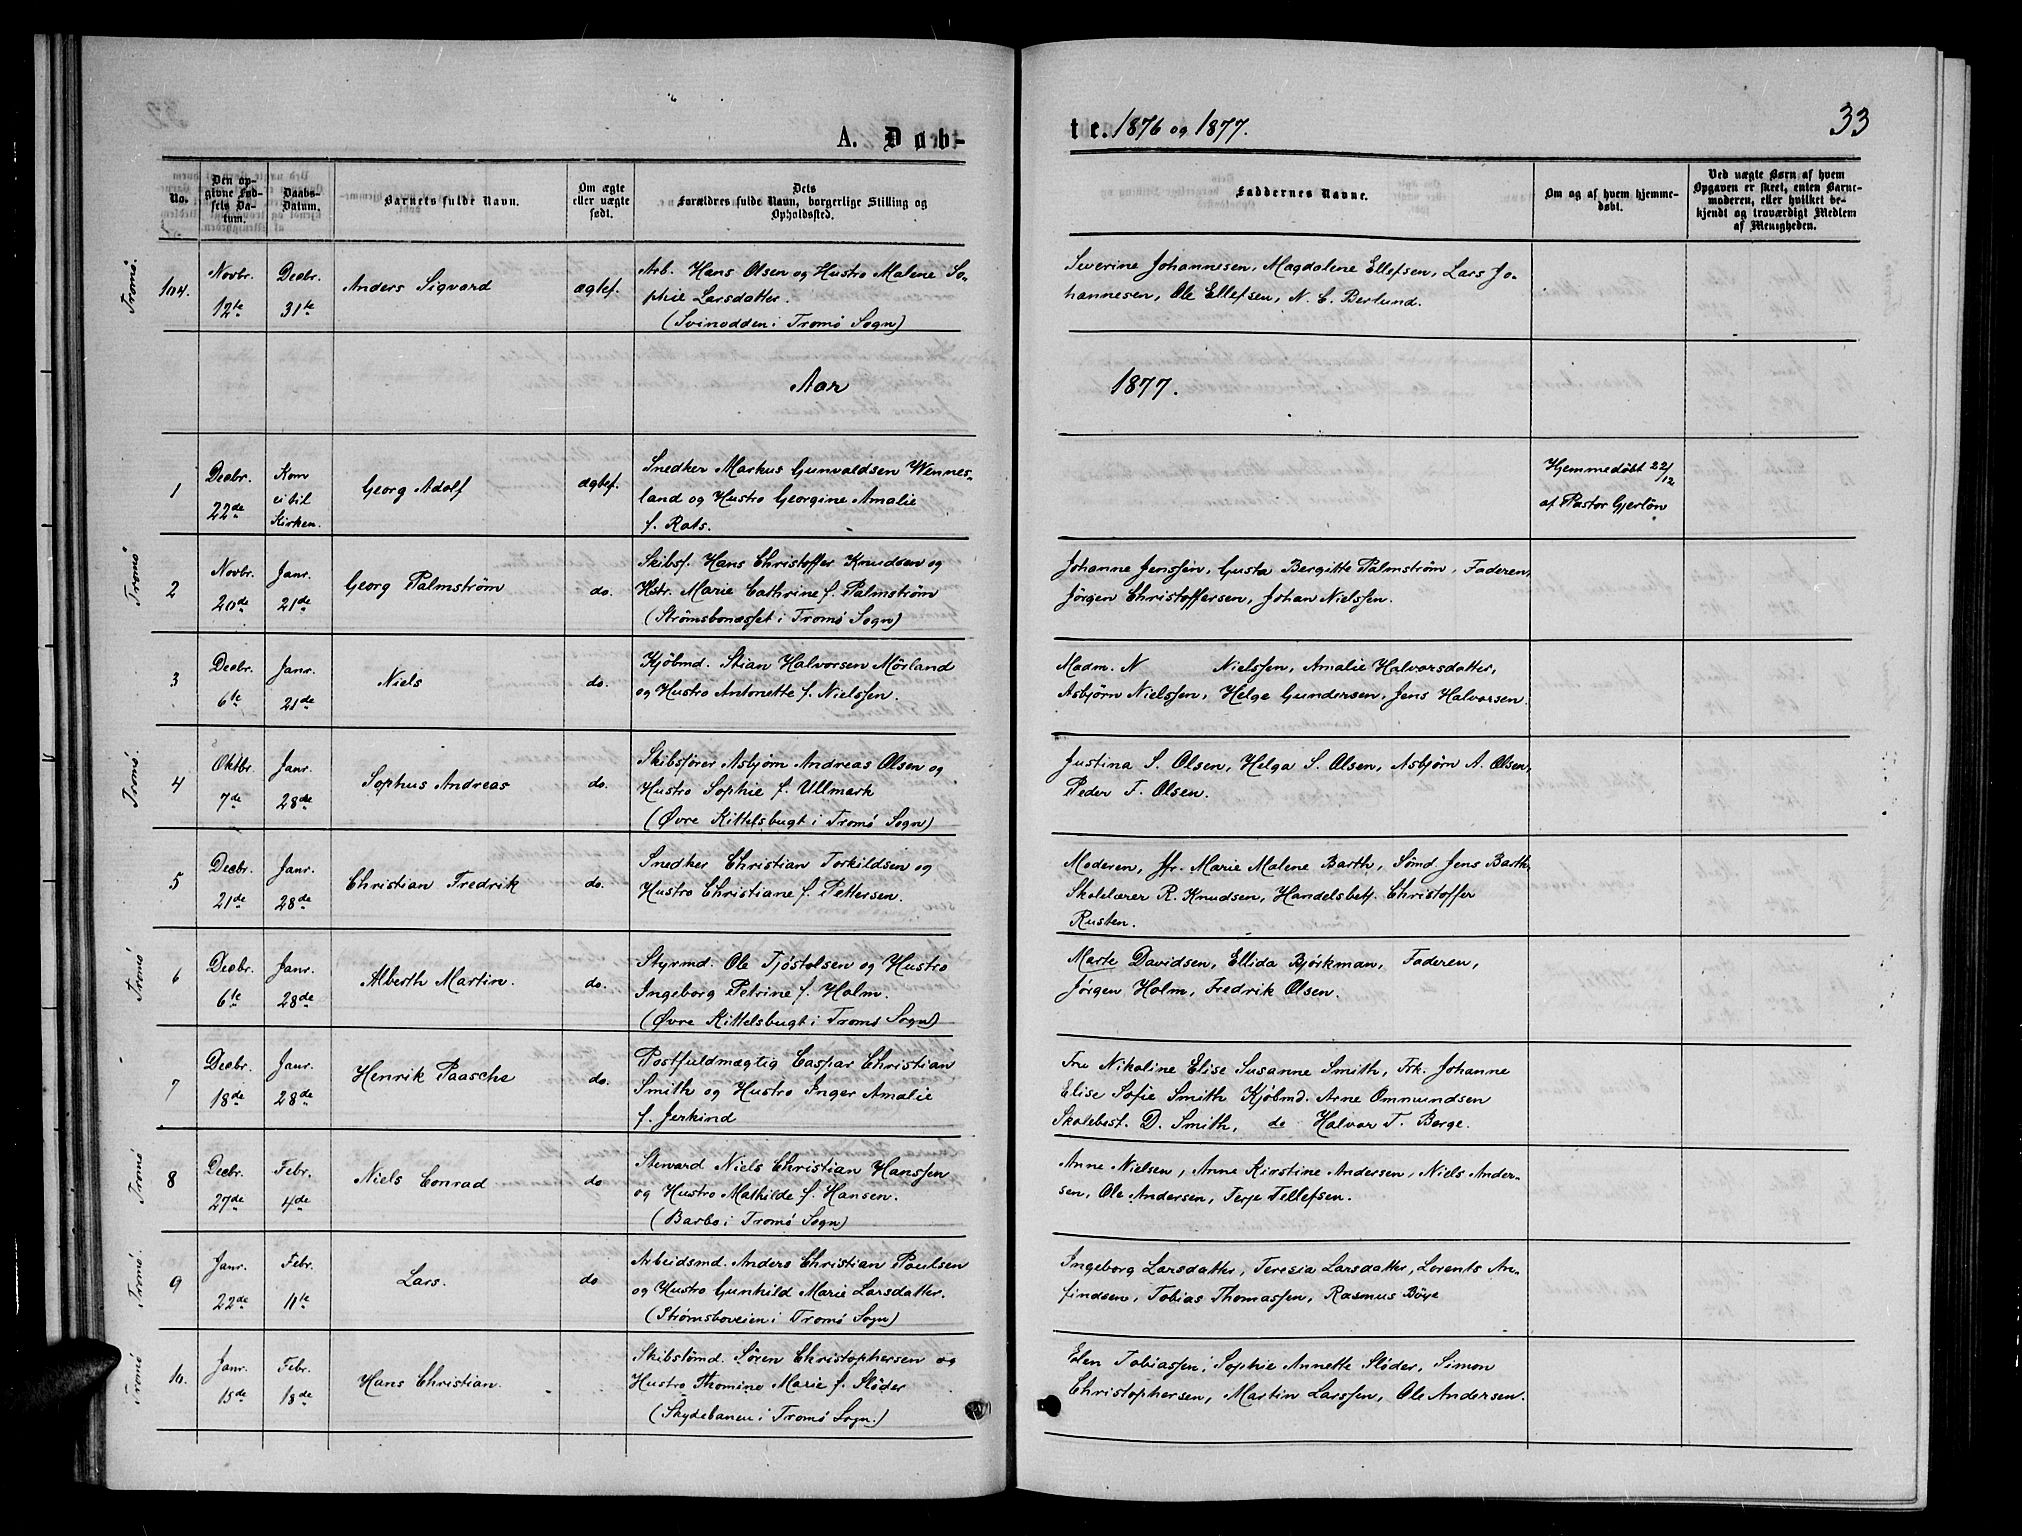 A. Døb-
te. 1876 og 1877.
33
No.
Den opgivne Fødsels Datum.
Daabs-Datum.
Barnets fulde Navn.
Om ægte eller uægte født.
Dets Forældres fulde Navn, borgerlige Stilling og Opholdssted.
Faddernes Navne.
Om og af hvem hjemmedøbt.
Ved uægte Børn af hvem Opgaven er skeet, enten Barnemoderen, eller hvilket bekjendt og troværdigt Medlem af Menigheden.
Tromø.
104.
Novbr. 12te
Decbr. 31te
Anders Sigvard
ægtef.
Arb. Hans Olsen og Hustro Malene So-
phie Larsdatter.
(Svinodden i Tromø Sogn)
Severine Johannesen, Magdalene Ellefsen, Lars Jo-
hannesen, Ole Ellefsen, N. C. Berlund.
Aar
1877.
1
Decbr. 22de
Kom ei til Kirken.
Georg Adolf
ægtef.
Snedker Markus Gunvaldsen Wennes-
land og Hustro Georgine Amalie
f. Rots.
Hjemmedøbt 22/12
af Pastor Gjerløw
Tromø
2
Novbr. 20de
Janr. 21de
Georg Palmstrøm
do.
Skibsf. Hans Christoffer Knudsen og
Hstr. Marie Cathrine f. Palmstrøm
(Strømsbonæsset i Tromø Sogn)
Johanne Jenssen, Gusta Bergitte Palmstrøm, Faderen,
Jørgen Christoffersen, Johan Nielssen.
3
Decbr. 6te
Janr. 21de
Niels
do.
Kjøbmd. Stian Halvorsen Mørland
og Hustro Antonette f. Nielssen.
Madm. N Nielssen, Amalie Halvorsdatter,
Asbjørn Nielssen, Helge Gundersen, Jens Halvorsen.
Tromø.
4
Oktbr. 7de
Janr. 28de
Sophus Andreas
do.
Skibsfører Asbjørn Andreas Olsen og
Hustro Sophie f. Ullmark
(Øvre Kittelsbugt i Tromø Sogn)
Justina S. Olsen, Helga S. Olsen, Asbjørn A. Olsen,
Peder T. Olsen.
5
Decbr. 21de
Janr. 28de
Christian Fredrik
do.
Snedker Christian Torkildsen og
Hustro Christiane f. Pettersen.
Moderen, Jfr. Marie Malene Barth, Sømd. Jens Barth,
Skolelærer R. Knudsen, Handelsbetj. Christoffer
Rusten.
Tromø
6
Decbr. 6te
Janr. 28de
Alberth Martin.
do.
Styrmd. Ole Tjøstolsen og Hustro
Ingeborg Petrine f. Holm.
(Øvre Kittelsbugt i Tromø Sogn)
Marte Davidsen, Ellida Bjørkman, Faderen,
Jørgen Holm, Fredrik Olsen.
7
Decbr. 18de
Janr. 28de
Henrik Paasche
do.
Postfuldmægtig Caspar Christian
Smith og Hustro Inger Amalie
f. Jerkind
Fru Nikoline Elise Susanne Smith, Frk. Johanne
Elise Sofie Smith Kjøbmd. Arne Ommundsen
Skolebest. D. Smith, do Halvor T. Berge.
Tromø
8
Decbr. 27de
Febr. 4de
Niels Conrad
do
Steward Niels Christian Hanssen
og Hustro Mathilde f. Hansen.
(Barbo i Tromø Sogn)
Anne Nielsen, Anne Kirstine Andersen, Niels Ander-
sen, Ole Andersen, Terje Tellefsen.
Tromø.
9
Janr. 22de
Febr. 11te
Lars.
do
Arbeidsmd. Anders Christian Poulsen
og Hustro Gunhild Marie Larsdatter.
(Strømsboveien i Tromø Sogn)
Ingeborg Larsdatter, Teresia Larsdatter, Lorents An-
findsen, Tobias Thomassen, Rasmus Bøye
Tromø
10.
Janr. 15de
Febr. 18de
Hans Christian.
Skibstømd. Søren Christophersen og
Hustro Thomine Marie f. Sløder
(Skydebanen i Tromø Sogn.)
Elen Tobiassen, Sophie Annette Sløder, Simon
Christophersen, Martin Larssen, Ole Andersen.